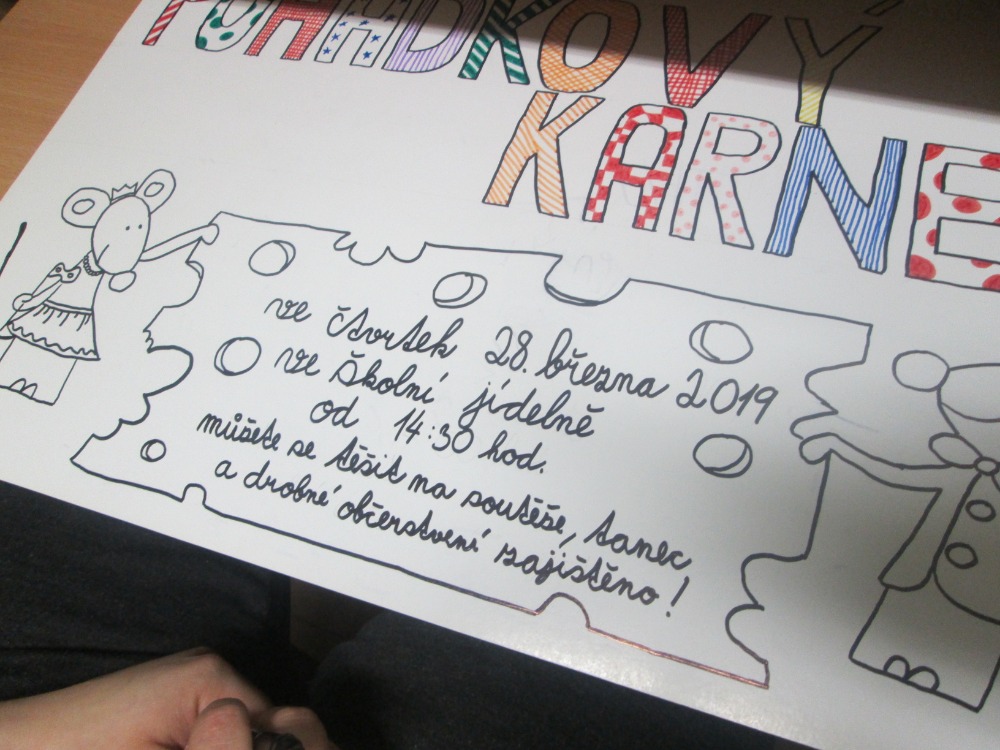 POHÁDKOVÝ
KARNE
ve čtvrtek 28. března 2019
ve školní jídelně
od 14:30 hod.
můžete se těšit na soutěže, tanec
a drobné občerstvení zajištěno!